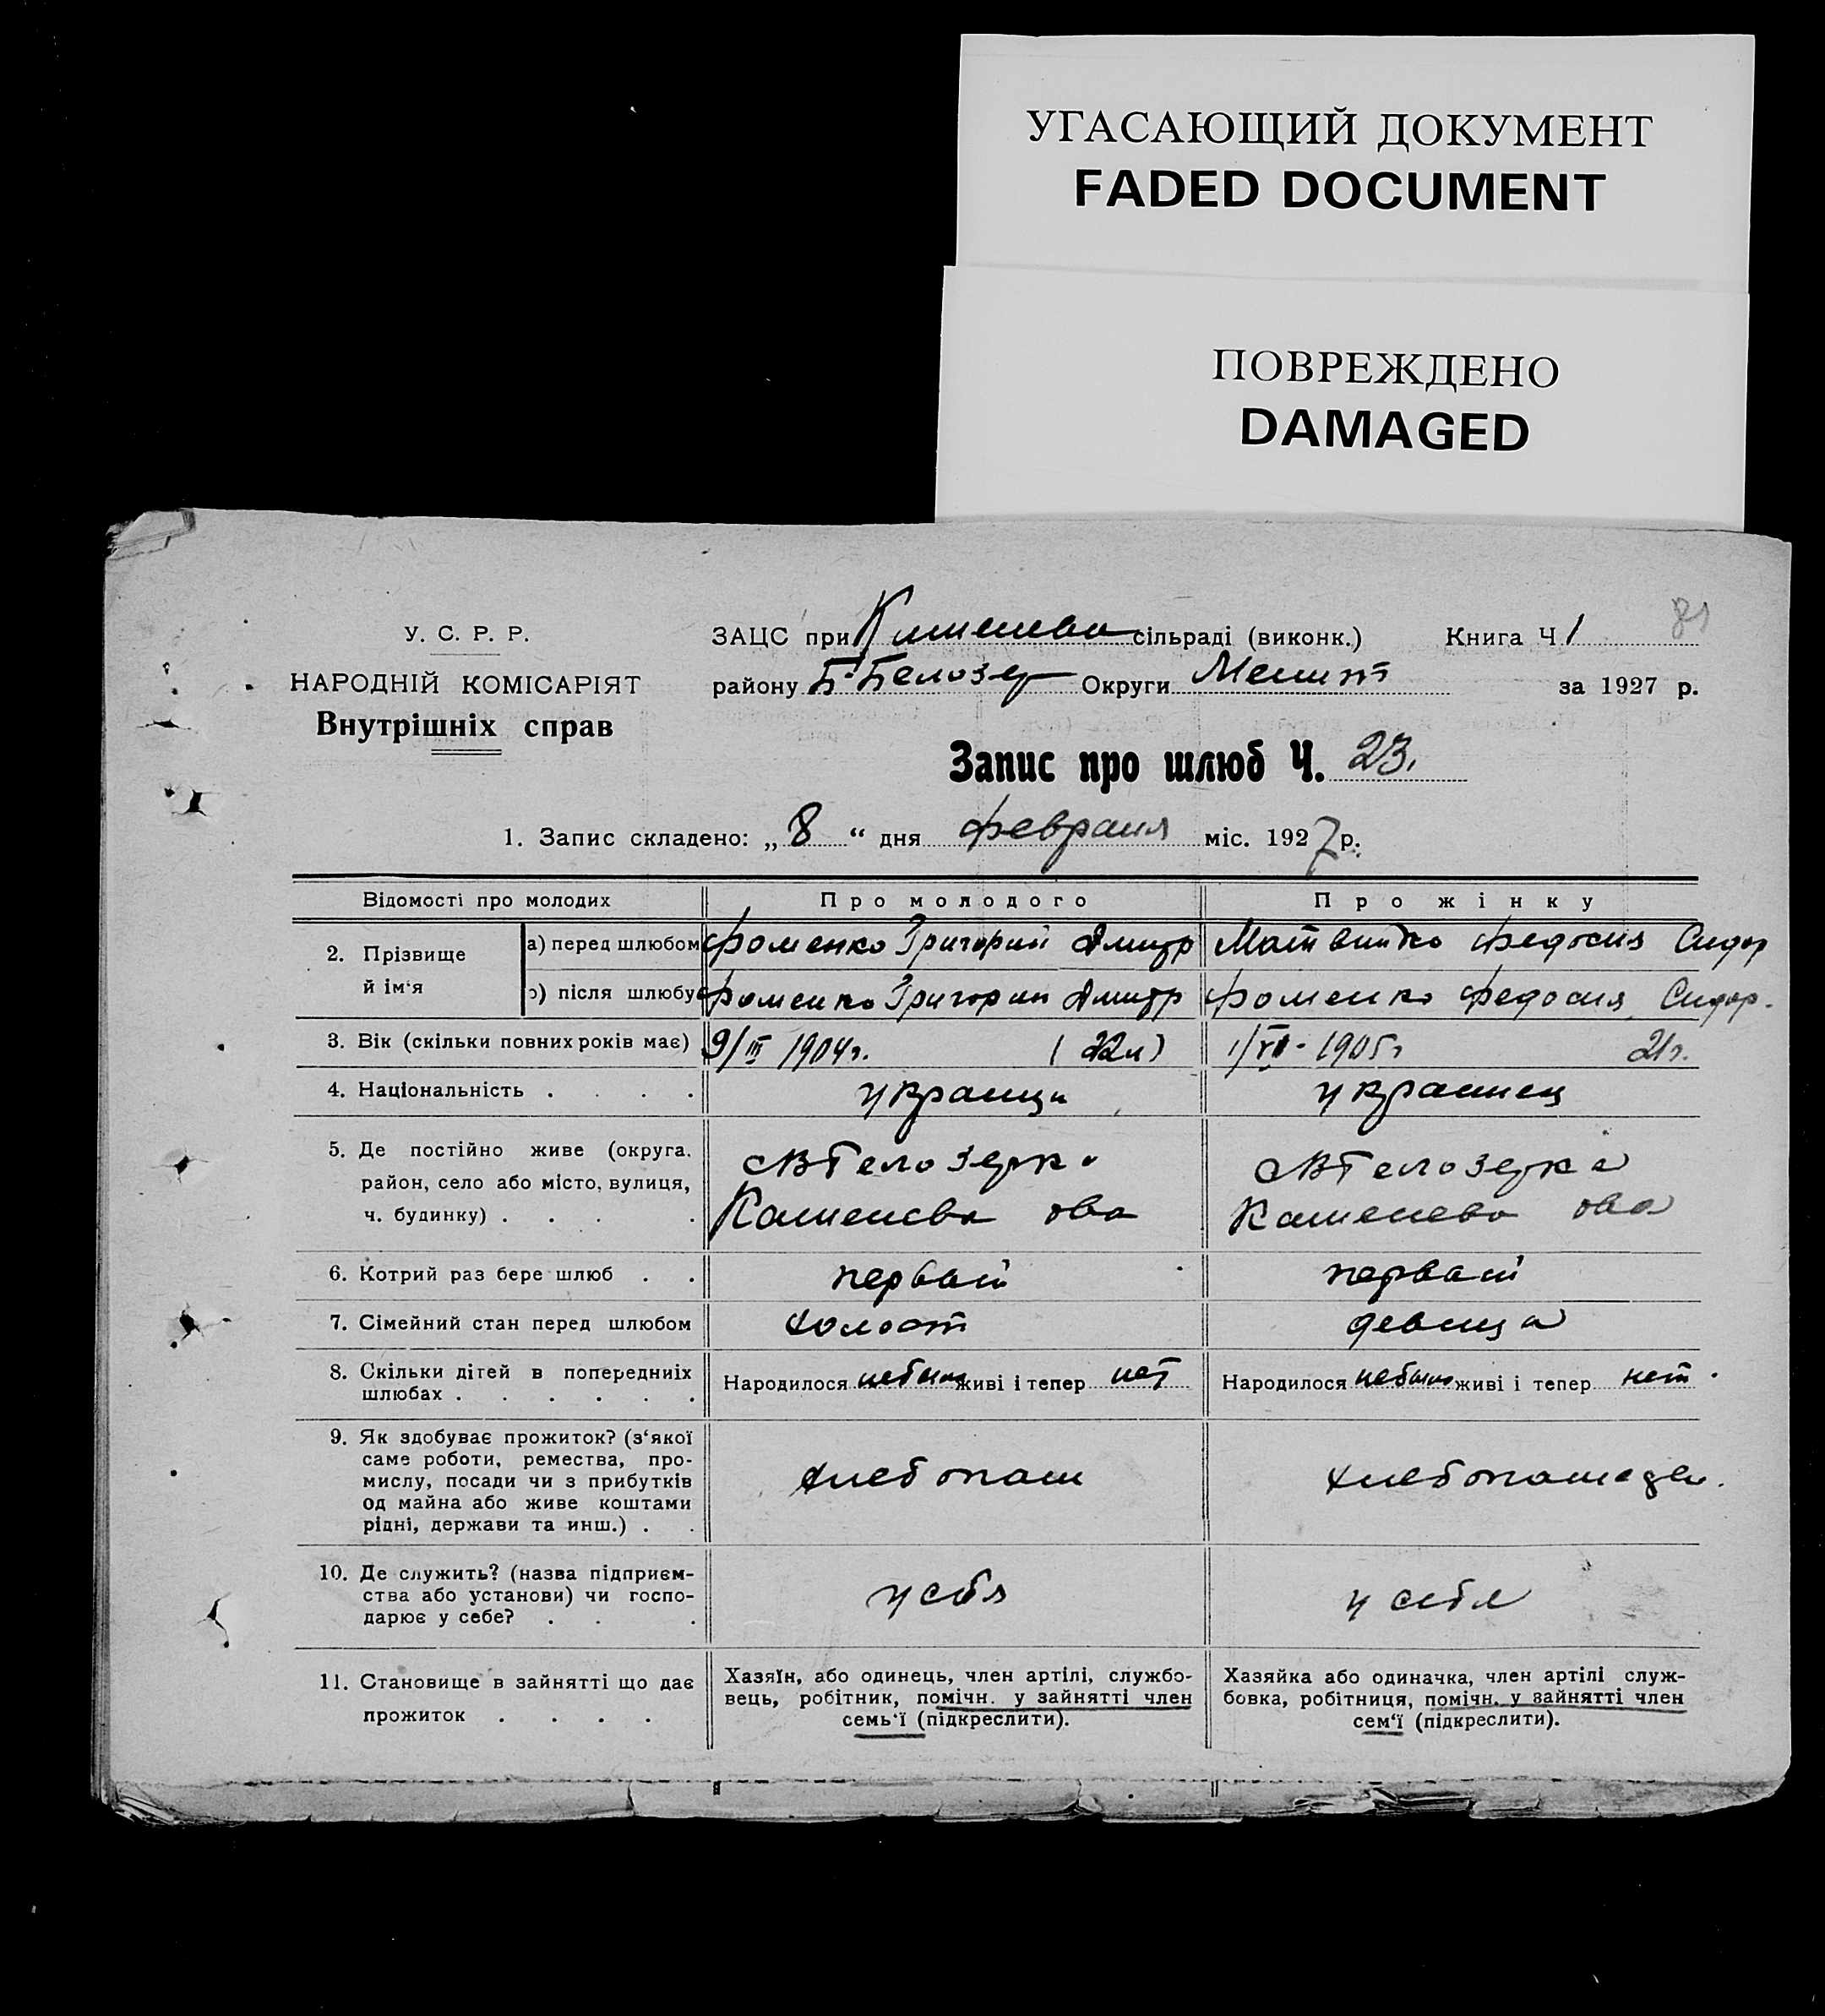 УГАСАЮЩИЙ ДОКУМЕНТ
FADED DOCUMENT
ПОВРЕЖДЕНО
DAMAGED
81
У. С. Р. Р.
НАРОДНІЙ КОМІСАРІЯТ
Внутрішніх справ
ЗАЦС при сільраді (виконк.) Книга Ч 1
району Б-Белозер Округи Мелит за 1927 р.
Запис про шлюб Ч. 23.
1. Запис складено: „ 8 “ дня февраля міс. 1927 р.
Відомості про молодих Про молодого Про жінку
2. Прізвище й ім‘я
а) перед шлюбом Фоменко Григорий Дмитр Матвийко Федосия Сидор
б) після шлюбу Фоменко Григорий Дмитр Фоменко Федосия Сидор.
3. Вік (скільки повних років має) 9/III 1904г. (22л) 1/VI-1905г 21г.
4. Національність . . . . украинц украинец
5. Де постійно живе (округа,
район, село або місто, вулиця,
ч. будинку) . . . .
Белозерка
Каменева ова
Белозерка
Каменева ова
6. Котрий раз бере шлюб . . первый первый
7. Сімейний стан перед шлюбом холост девица
8. Скільки дітей в попередніх
шлюбах . . . . . .
Народилося небыло живі і тепер нет
Народилося небыло живі і тепер нет
9. Як здобуває прожиток? (з‘якої
саме роботи, ремества, про-
мислу, посади чи з прибутків
од майна або живе коштами
рідні, держави та инш.) . .
хлебопаш
хлебопашеде.
10. Де служить? (назва підприєм-
ства або установи) чи госпо-
дарює у себе? . . .
у себя
у себя
11. Становище в зайнятті що дає
прожиток . . . .
Хазяїн, або одинець, член артілі, службо-
вець, робітник, помічн. у зайнятті член
семь‘ї (підкреслити).
Хазяйка або одиначка, член артілі служ-
бовка, робітниця, помічн. у зайнятті член
сем‘ї (підкреслити).